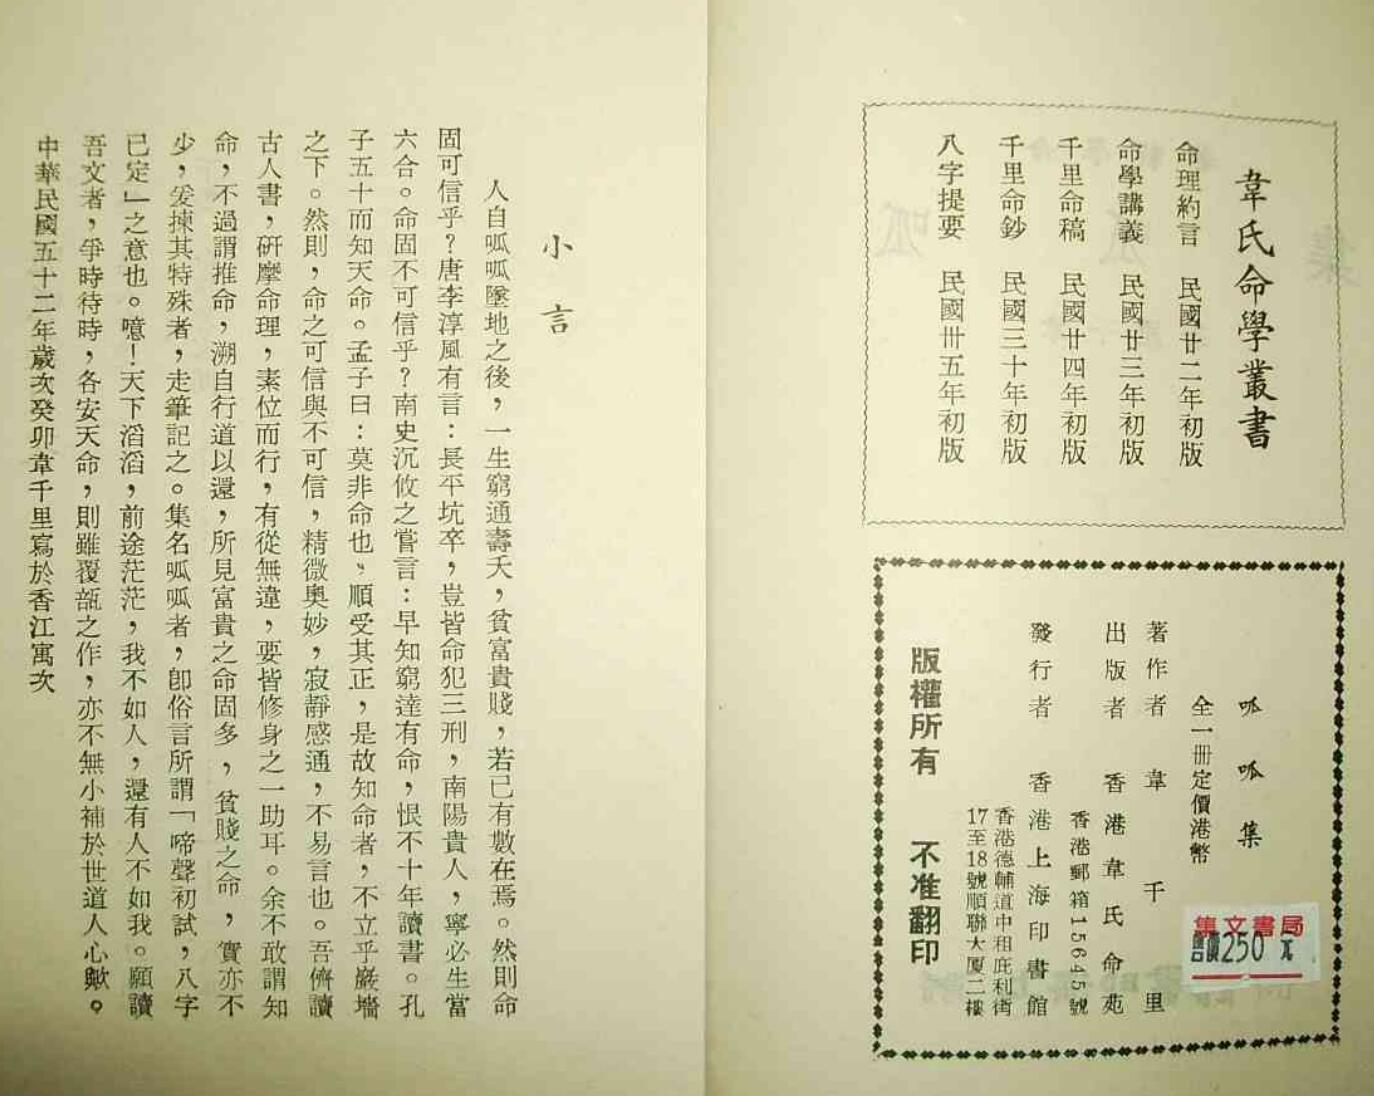 韋氏命學叢書
命理約言　民國廿二年初版
命學講義　民國廿三年初版
千里命稿　民國廿四年初版
千里命鈔　民國三十年初版
八字提要　民國卅五年初版
呱呱集
全一冊定價港幣
集文書局
售價250元
著作者　韋千里
出版者　香港韋氏命苑
香港郵箱15645號
發行者　香港上海印書館
香港德輔道中租庇利街
17至18號順聯大厦二樓
版權所有　不准翻印
小言
人自呱呱墜地之後，一生窮通壽夭，貧富貴賤，若已有數在焉。然則命
固可信乎？唐李淳風有言：長平坑卒，豈皆命犯三刑，南陽貴人，寧必生當
六合。命固不可信乎？南史沉攸之嘗言：早知窮達有命，恨不十年讀書。孔
子五十而知天命。孟子曰：莫非命也，順受其正，是故知命者，不立乎巖墻
之下。然則，命之可信與不可信，精微奧妙，寂靜感通，不易言也。吾儕讀
古人書，研摩命理，素位而行，有從無違，要皆修身之一助耳。余不敢謂知
命，不過謂推命，溯自行道以還，所見富貴之命固多，貧賤之命，實亦不
少，爰揀其特殊者，走筆記之。集名呱呱者，卽俗言所謂「啼聲初試，八字
已定」之意也。噫！天下滔滔，前途茫茫，我不如人，還有人不如我。願讀
吾文者，爭時待時，各安天命，則雖覆瓿之作，亦不無小補於世道人心歟。
中華民國五十二年歲次癸卯韋千里寫於香江寓次